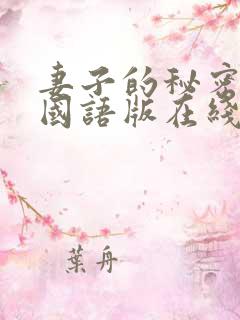 妻子的秘密
國語版在綫
葉舟